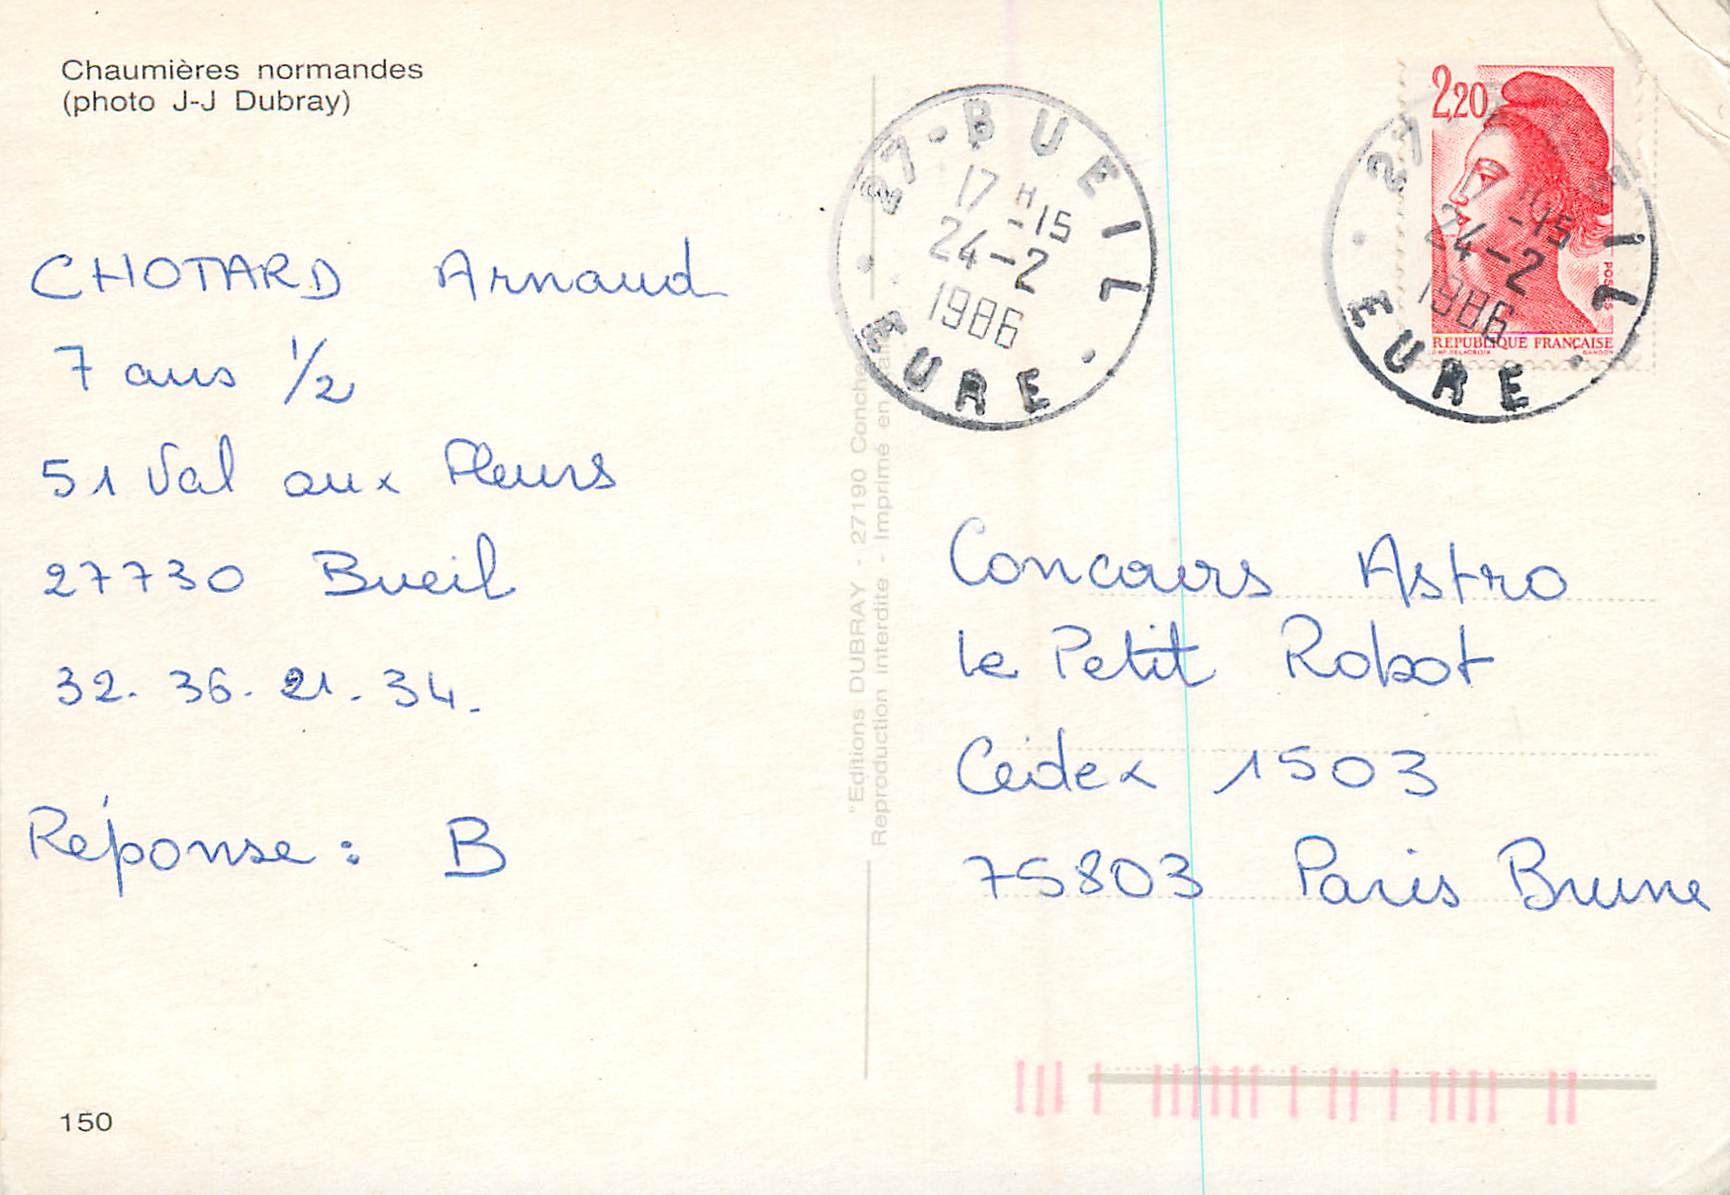 Chaumières normandes
(photo J-J Dubray)
CHOTARD Arnaud
7 ans 1/2
51 Val aux Fleurs
27730 Bueil
32. 36. 21. 34.
Réponse : B
150
"Editions DUBRAY - 27190 Conches
Reproduction interdite - Imprimé en
27-BUEIL
17 H -15
24-2
1986
EURE
2,20
POSTES
REPUBLIQUE FRANÇAISE
D'AP. DELACROIX GANDON
27 IL
17 H -15
24-2
1986
EURE
Concours Astro
le Petit Robot
Cedex 1503
75803 Paris Brune